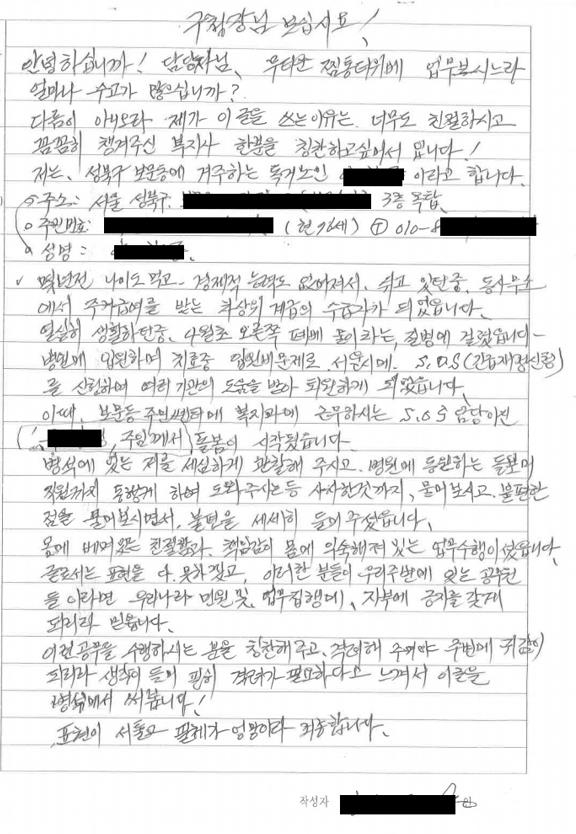 구청장님 보십시요!
안녕하십니까! 담당자님, 무더운 찜통더위에 업무보시느라
얼마나 수고가 많으십니까?
다름이 아니오라 제가 이글을 쓰는이유는 너무도 친절하시고
꼼꼼히 챙겨주신 복지사 한분을 칭찬하고싶어서 입니다!
저는, 성북구 보문동에 거주하는 독거노인 이라고 합니다.
주소: 서울 성북구 3층 옥탑
주민번호: (현76세) T 010-8
성명:
몇년전 나이도 먹고 경제적 능력도 없어져서 쉬고 있던중, 동사무소
에서 주거급여를 받는 최상위 계급의 수급자가 되었읍니다.
열심히 생활하던중, 4월초 오른쪽 폐에 이라는, 질병에 걸렸읍니다-
병원에 입원하여 치료중 입원비문제로 서울시에. S.O.S (긴급재정신청)
를 신청하여 여러기관의 도움을 받아 퇴원하게 되었읍니다.
이때, 보문동 주민쎈타에 복지과에 근무하시는 S.O.S 담당이신
( , 주임께서) 돌봄이 시작됬습니다.
병석에 있는 저를 세심하게 관찰해 주시고. 병원에 동원하는 돌보미
직원까지 동행케 하여 도와주시는등 사사한것까지, 물어보시고, 불편한
점을 물어보시면서, 불편을 세세히 들어주셨읍니다.
몸에 베여있는 친절함과, 책임감이 몸에 익숙해져 있는 업무수행이셨읍니다.
글로서는 표현을 다 못하겠고, 이러한 분들이 우리주변에 있는 공무원
들이라면 우리나라 민원및, 업무집행에, 자부에 긍지를 갖게
되리라 믿읍니다.
이런공무를 수행하시는 분을 칭찬해주고, 격려해 주어야 주변에 귀감이
되리라 생각이 들어 필히 격려가 필요하다고 느껴서 이글을
병석에서 써봅니다!
표현이 서툴고 필체가 엉망이라 죄송합니다.
작성자